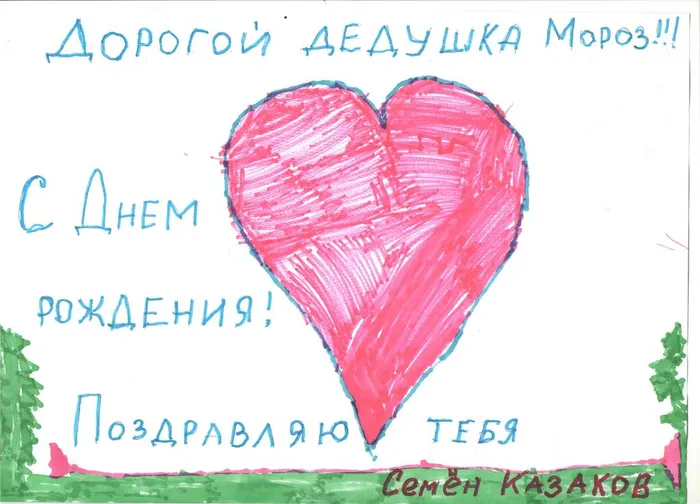 Дорогой дедушка Мороз!!!
С Днем
рождения!
Поздравляю тебя
Семён Казаков